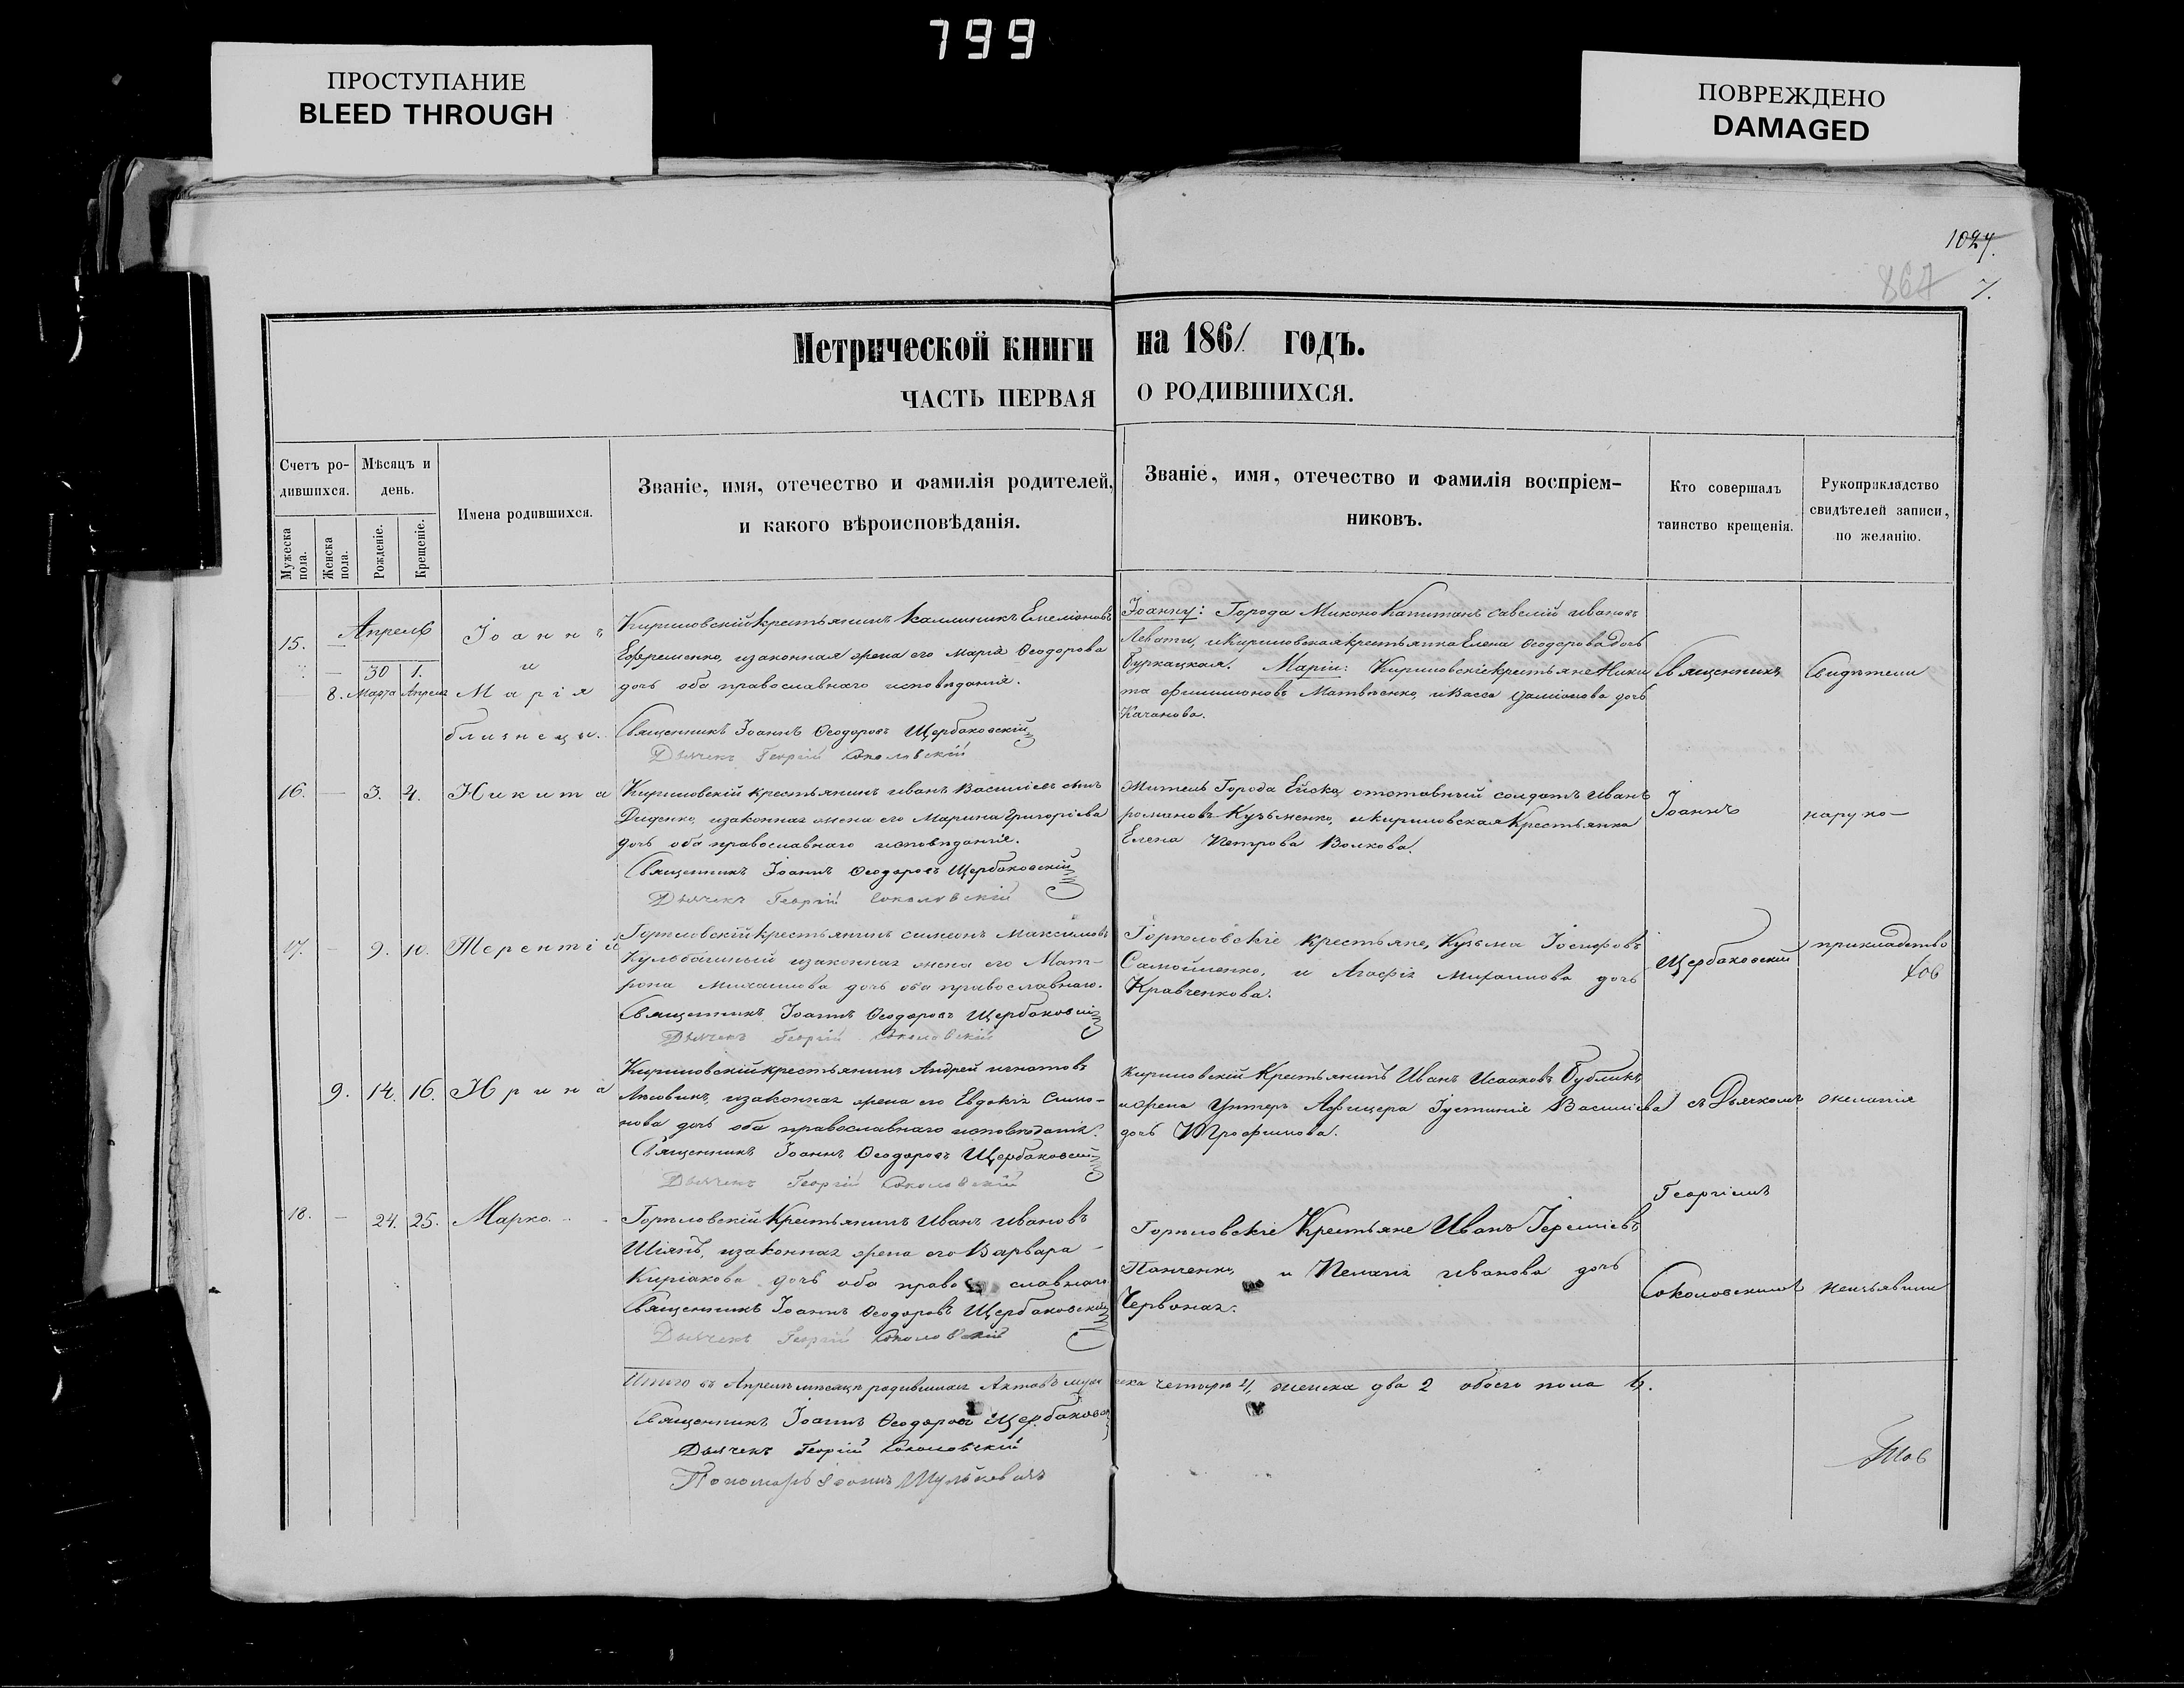 799
ПРОСТУПАНИЕ
BLEED THROUGH
ПОВРЕЖДЕНО
DAMAGED
1027.
867
7.
Метрической книги на 1861 годъ.
ЧАСТЬ ПЕРВАЯ О РОДИВШИХСЯ.
Счетъ ро-
дившихся.
Мужеска
пола.
Женска
пола.
Мѣсяцъ и
день.
Рожденіе.
Крещеніе.
Имена родившихся.
Званіе, имя, отечество и фамилія родителей,
и какого вѣроисповѣданія.
Званіе, имя, отечество и фамилія воспріем-
никовъ.
Кто совершалъ
таинство крещенія.
Рукоприкладство
свидѣтелей записи,
по желанію.
15. — Апрель
8. 30 Марта 1. Апреля
Іоаннъ
и
Марія
близнецы.
Кириловскій крестьянинъ Каллиникъ Емеліановъ
Ефременко, и законная жена его Марія Ѳеодорова
дочь оба православнаго исповиданія.
Священникъ Іоаннъ Ѳеодоровъ Щербаковскій
Дьячекъ Георгій Соколовскій
Іоанну: Города Миконо Капитанъ Савелій Ивановъ
Левати, и Кириловская крестьянка Елена Ѳеодорова дочь
Буркацкая. Маріи: Кириловскіе крестьяне Ники
та Матвѣенко, и Васса Даміанова дочь
Качанова.
16. — 3. 4. Никита
Кириловскій крестьянинъ Иванъ Василіевъ сынъ
Диденко, и законная жена его Марина Григоріева
дочь оба православнаго исповиданія.
Священникъ Іоаннъ Ѳеодоровъ Щербаковскій
Дьячекъ Георгій Соколовскій
Житель Города Ейска, отставный солдатъ Иванъ
Романовъ Кузьменко, и Кириловская Крестьянка
Елена Петрова Волкова.
17. — 9. 10. Терентій
Горповскій крестьянинъ Симеонъ Максимовъ
и законная жена его Мат-
рона Михаилова дочь оба православнаго.
Священникъ Іоаннъ Ѳеодоровъ Щербаковскій
Дьячекъ Георгій Соколовскій
крестьяне, Кузьма Іосифовъ
Самойленко, и Агафія Михаилова дочь
Кравченкова.
9. 14. 16. Ирина
Кириловскій крестьянинъ Андрей Игнатовъ
и законная жена его Евдокія Симо-
нова дочь оба православнаго исповѣданія.
Священникъ Іоаннъ Ѳеодоровъ Щербаковскій
Дьячекъ Георгій Соколовскій
Кириловскій Крестьянинъ Иванъ Исааковъ Бубликъ,
и жена Унтеръ Афицера Іустинія Василіева
дочь Трофимова.
18. — 24. 25. Марко
Крестьянинъ Иванъ Ивановъ
Шіянъ, и законная жена его Варвара
Киріакова дочь оба православнаго
Священникъ Іоаннъ Ѳеодоровъ Щербаковскій
Дьячекъ Георгій Соколовскій
Крестьяне Иванъ Іереміевъ
Панченко, и Пелагія Иванова дочь
Червоная.
Священникъ
Іоаннъ
Щербаковскій
съ Дьячкомъ
Георгіемъ
Соколовскимъ
Свидѣтели
наруко—
прикладство
желанія
неизъявили
Итого въ Апрелѣ мѣсяцѣ родившихся Актовъ мужеска четыре 4, женска два 2 обоего пола 6.
Священникъ Іоаннъ Ѳеодоровъ Щербаковскій
Дьячекъ Георгій Соколовскій
Пономарь Іоаннъ Шулькевичъ